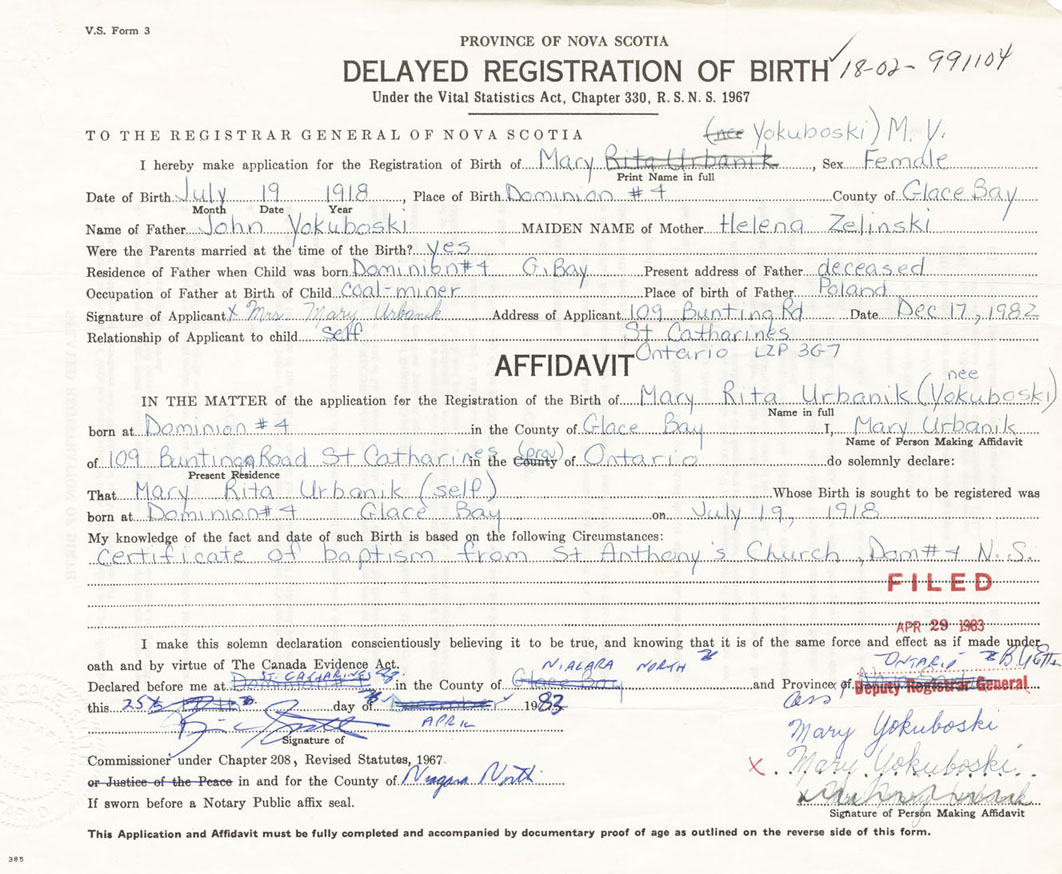 V.S. Form 3
PROVINCE OF NOVA SCOTIA
DELAYED REGISTRATION OF BIRTH 18-02-991104
Under the Vital Statistics Act, Chapter 330, R. S. N. S. 1967
TO THE REGISTRAR GENERAL OF NOVA SCOTIA (nee Yokuboski) M. Y.
I hereby make application for the Registration of Birth of Mary Rita Urbanik, Sex Female
Print Name in full
Date of Birth July 19 1918, Place of Birth Dominion #4 County of Glace Bay
Month Date Year
Name of Father John Yokuboski MAIDEN NAME of Mother Helena Zelinski
Were the Parents married at the time of the Birth? yes
Residence of Father when Child was born Dominion #4 G. Bay Present address of Father deceased
Occupation of Father at Birth of Child coal-miner Place of birth of Father Poland
Signature of Applicant X Mrs Mary Urbanik Address of Applicant 109 Bunting Rd Date Dec 17, 1982
Relationship of Applicant to child self St Catharines
AFFIDAVIT Ontario L2P 3G7
nee
IN THE MATTER of the application for the Registration of the Birth of Mary Rita Urbanik (Yokuboski)
Name in full
born at Dominion #4 in the County of Glace Bay I, Mary Urbanik
Name of Person Making Affidavit
of 109 Bunting Road St Catharines in the County (prov) of Ontario do solemnly declare:
Present Residence
That Mary Rita Urbanik (self) Whose Birth is sought to be registered was
born at Dominion #4 Glace Bay on July 19, 1918
My knowledge of the fact and date of such Birth is based on the following Circumstances:
Certificate of baptism from St Anthony's Church, Dom #4 N.S.
FILED
APR 29 1983
I make this solemn declaration conscientiously believing it to be true, and knowing that it is of the same force and effect as if made under
oath and by virtue of The Canada Evidence Act. NIAGARA NORTH ONTARIO
ST. CATHARINES
Declared before me at Dominion in the County of Glace Bay and Province of Deputy Registrar General
this 25th day of 1983
APRIL
Mary Yokuboski
Signature of
Commissioner under Chapter 208, Revised Statutes, 1967
X Mary Yokuboski
or Justice of the Peace in and for the County of Niagara North
If sworn before a Notary Public affix seal.
Signature of Person Making Affidavit
This Application and Affidavit must be fully completed and accompanied by documentary proof of age as outlined on the reverse side of this form.
385